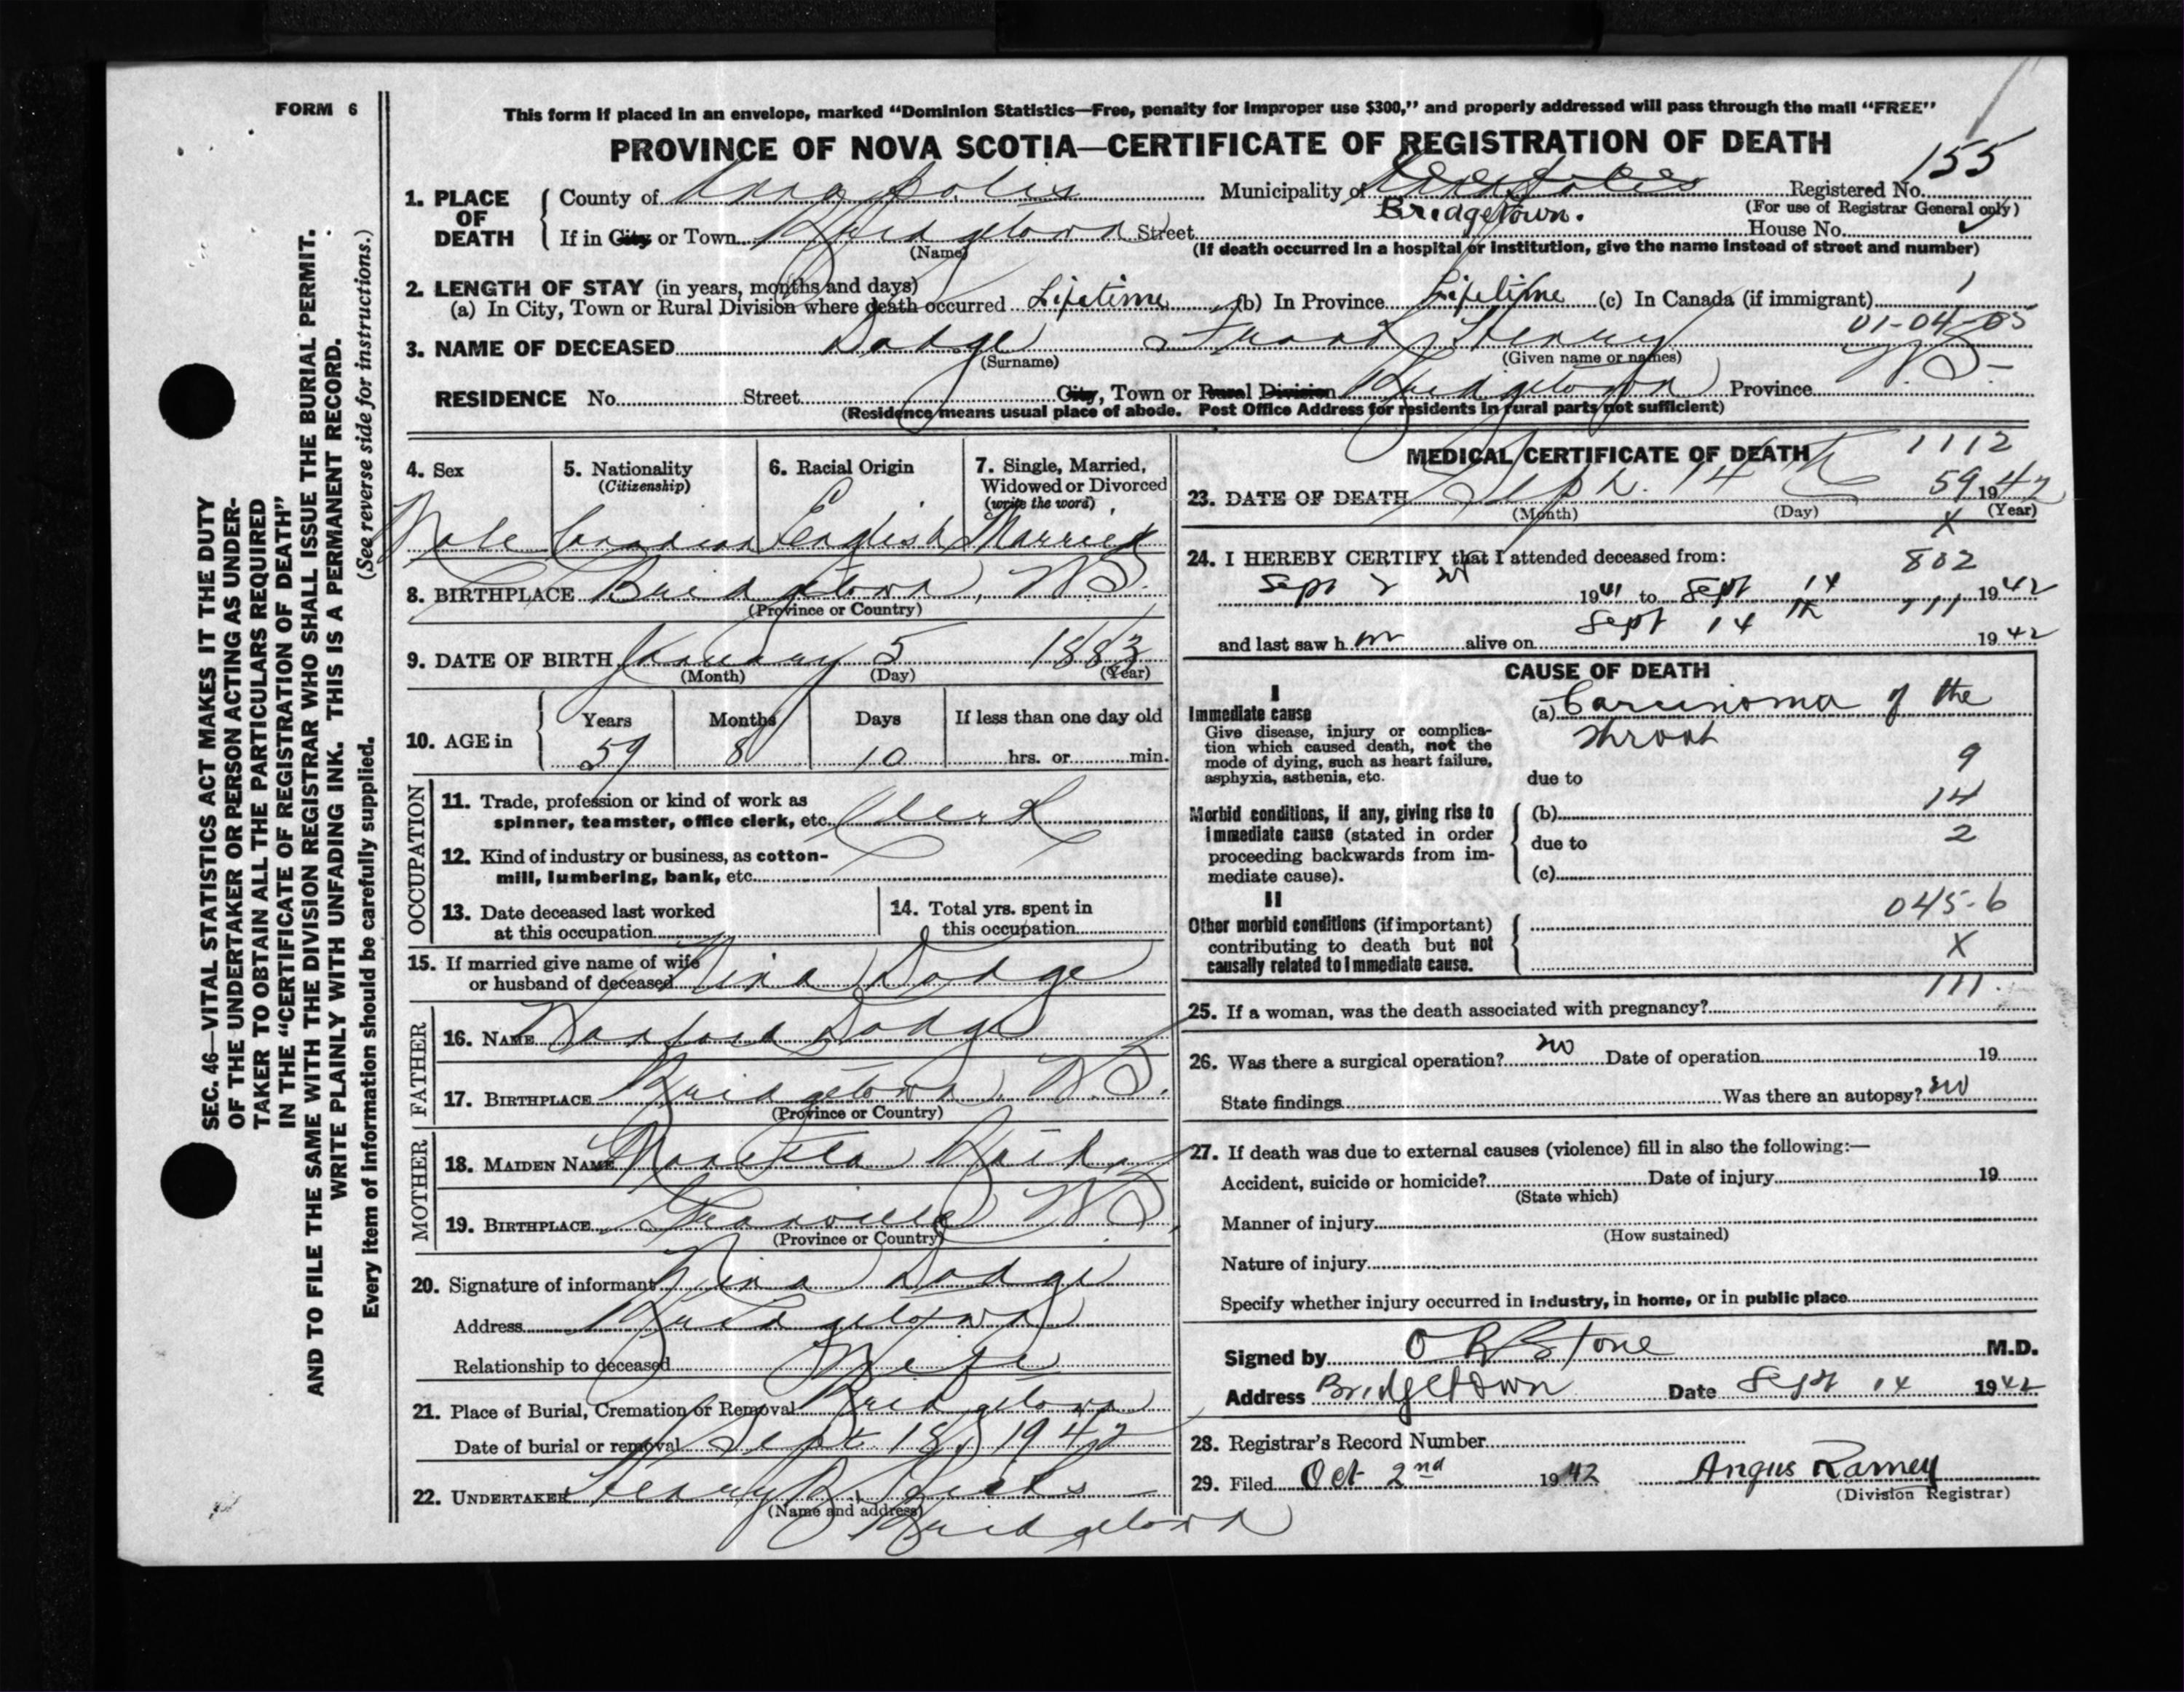 FORM 6
This form if placed in an envelope, marked “Dominion Statistics—Free, penalty for improper use $300,” and properly addressed will pass through the mail “FREE”
PROVINCE OF NOVA SCOTIA—CERTIFICATE OF REGISTRATION OF DEATH
155
1. PLACE OF DEATH County of Annapolis Municipality of Annapolis Registered No.
Bridgetown. (For use of Registrar General only)
If in City or Town Bridgetown Street House No.
(Name) (If death occurred in a hospital or institution, give the name instead of street and number)
2. LENGTH OF STAY (in years, months and days)
(a) In City, Town or Rural Division where death occurred Lifetime (b) In Province Lifetime (c) In Canada (if immigrant)
01-04-05
3. NAME OF DECEASED Dodge Frank Henry
(Surname) (Given name or names)
RESIDENCE No. Street City, Town or Rural Division Bridgetown Province N.S.
(Residence means usual place of abode. Post Office Address for residents in rural parts not sufficient)
4. Sex 5. Nationality (Citizenship) 6. Racial Origin 7. Single, Married, Widowed or Divorced (write the word)
Male Canadian English Married
8. BIRTHPLACE Bridgetown, N.S.
(Province or Country)
9. DATE OF BIRTH January 5 1883
(Month) (Day) (Year)
10. AGE in Years Months Days If less than one day old
59 8 10 hrs. or min.
OCCUPATION
11. Trade, profession or kind of work as spinner, teamster, office clerk, etc. Clerk
12. Kind of industry or business, as cotton-mill, lumbering, bank, etc.
13. Date deceased last worked at this occupation
14. Total yrs. spent in this occupation
15. If married give name of wife or husband of deceased Nina Dodge
FATHER
16. NAME Dodge
17. BIRTHPLACE Bridgetown, N.S.
(Province or Country)
MOTHER
18. MAIDEN NAME
19. BIRTHPLACE Granville N.S.
(Province or Country)
20. Signature of informant Nina Dodge
Address Bridgetown
Relationship to deceased Wife
21. Place of Burial, Cremation or Removal Bridgetown
Date of burial or removal Sept. 18, 1942
22. UNDERTAKER Henry B. Hicks
(Name and address)
Bridgetown
MEDICAL CERTIFICATE OF DEATH 1112
23. DATE OF DEATH Sept. 14th 59 1942
(Month) (Day) (Year)
X
24. I HEREBY CERTIFY that I attended deceased from: 802
Sept 2nd 1941 to Sept 14th 111 1942
and last saw h im alive on Sept 14 1942
CAUSE OF DEATH
I
Immediate cause
Give disease, injury or complication which caused death, not the mode of dying, such as heart failure, asphyxia, asthenia, etc.
(a) Carcinoma of the
throat
9
due to
14
Morbid conditions, if any, giving rise to immediate cause (stated in order proceeding backwards from immediate cause).
(b)
due to 2
(c)
II
045-6
Other morbid conditions (if important) contributing to death but not causally related to immediate cause.
X
111
25. If a woman, was the death associated with pregnancy?
26. Was there a surgical operation? no Date of operation 19
State findings Was there an autopsy? no
27. If death was due to external causes (violence) fill in also the following:—
Accident, suicide or homicide? Date of injury 19
(State which)
Manner of injury
(How sustained)
Nature of injury
Specify whether injury occurred in industry, in home, or in public place
Signed by O R Stone M.D.
Address Bridgetown Date Sept 14 1942
28. Registrar's Record Number
29. Filed Oct 2nd 1942 Angus Ramey
(Division Registrar)
SEC. 46—VITAL STATISTICS ACT MAKES IT THE DUTY
OF THE UNDERTAKER OR PERSON ACTING AS UNDER-
TAKER TO OBTAIN ALL THE PARTICULARS REQUIRED
IN THE “CERTIFICATE OF REGISTRATION OF DEATH”
AND TO FILE THE SAME WITH THE DIVISION REGISTRAR WHO SHALL ISSUE THE BURIAL PERMIT.
WRITE PLAINLY WITH UNFADING INK. THIS IS A PERMANENT RECORD.
Every item of information should be carefully supplied. (See reverse side for instructions.)